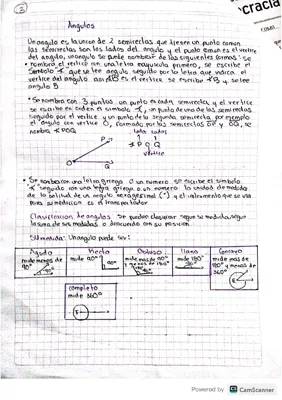 2
cracia
Angulos
Un angulo es la union de 2 semirectas que tienen un punto comun
las semirrectas son los lados del angulo y el punto comun es el vertice
del angulo, un angulo se puede nombrar de las siguientes formas: se
• nombra el vertice con una letra mayuscula primero, se escribe el
simbolo ∢ que se lee angulo seguido por la letra que indica el
vertice del angulo B es el vertice, se escribe ∢B y se lee
angulo B
• Se nombra con 3 puntos un punto en cada semirecta y el vertice
se escribe en orden el simbolo ∢, un punto de una de las semirectas
seguido por el vertice y un punto de la segunda semirecta, por ejemplo
el angulo con vertice O, formado por las semirectas OP y OQ, se
nombra ∢ POQ
lado lado
P
∢ P O Q
vertice
O
Q
• Se nombra con una letra griega o un numero se escribe el simbolo
∢ seguido con una letra griega o un numero la unidad de medida
de la amplitud de un angulo es el sexagesimal (°) y el instrumento que se usa
para su medicion es el transportador
Clasificacion de angulos Se pueden clasificar segun su medida, segun
la suma de sus medidas o deacuerdo con su posicion.
Su medida: Un angulo puede ser:
Agudo
Recto
Obtuso
Llano
Concavo
mide menos de 90°
mide 90°
mide mas de 90° y menos de 180°
mide 180°
mide mas de 180° y menos de 360°
completo
mide 360°
Powered by CS CamScanner